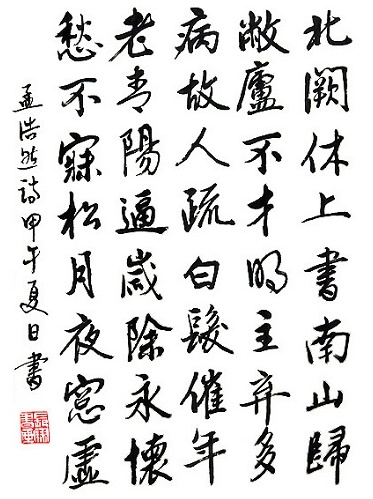 北闕休上書南山歸
敝廬不才明主棄多
病故人疏白髮催年
老青陽逼歲除永懷
愁不寐松月夜窓虛
孟浩然詩甲午夏日書